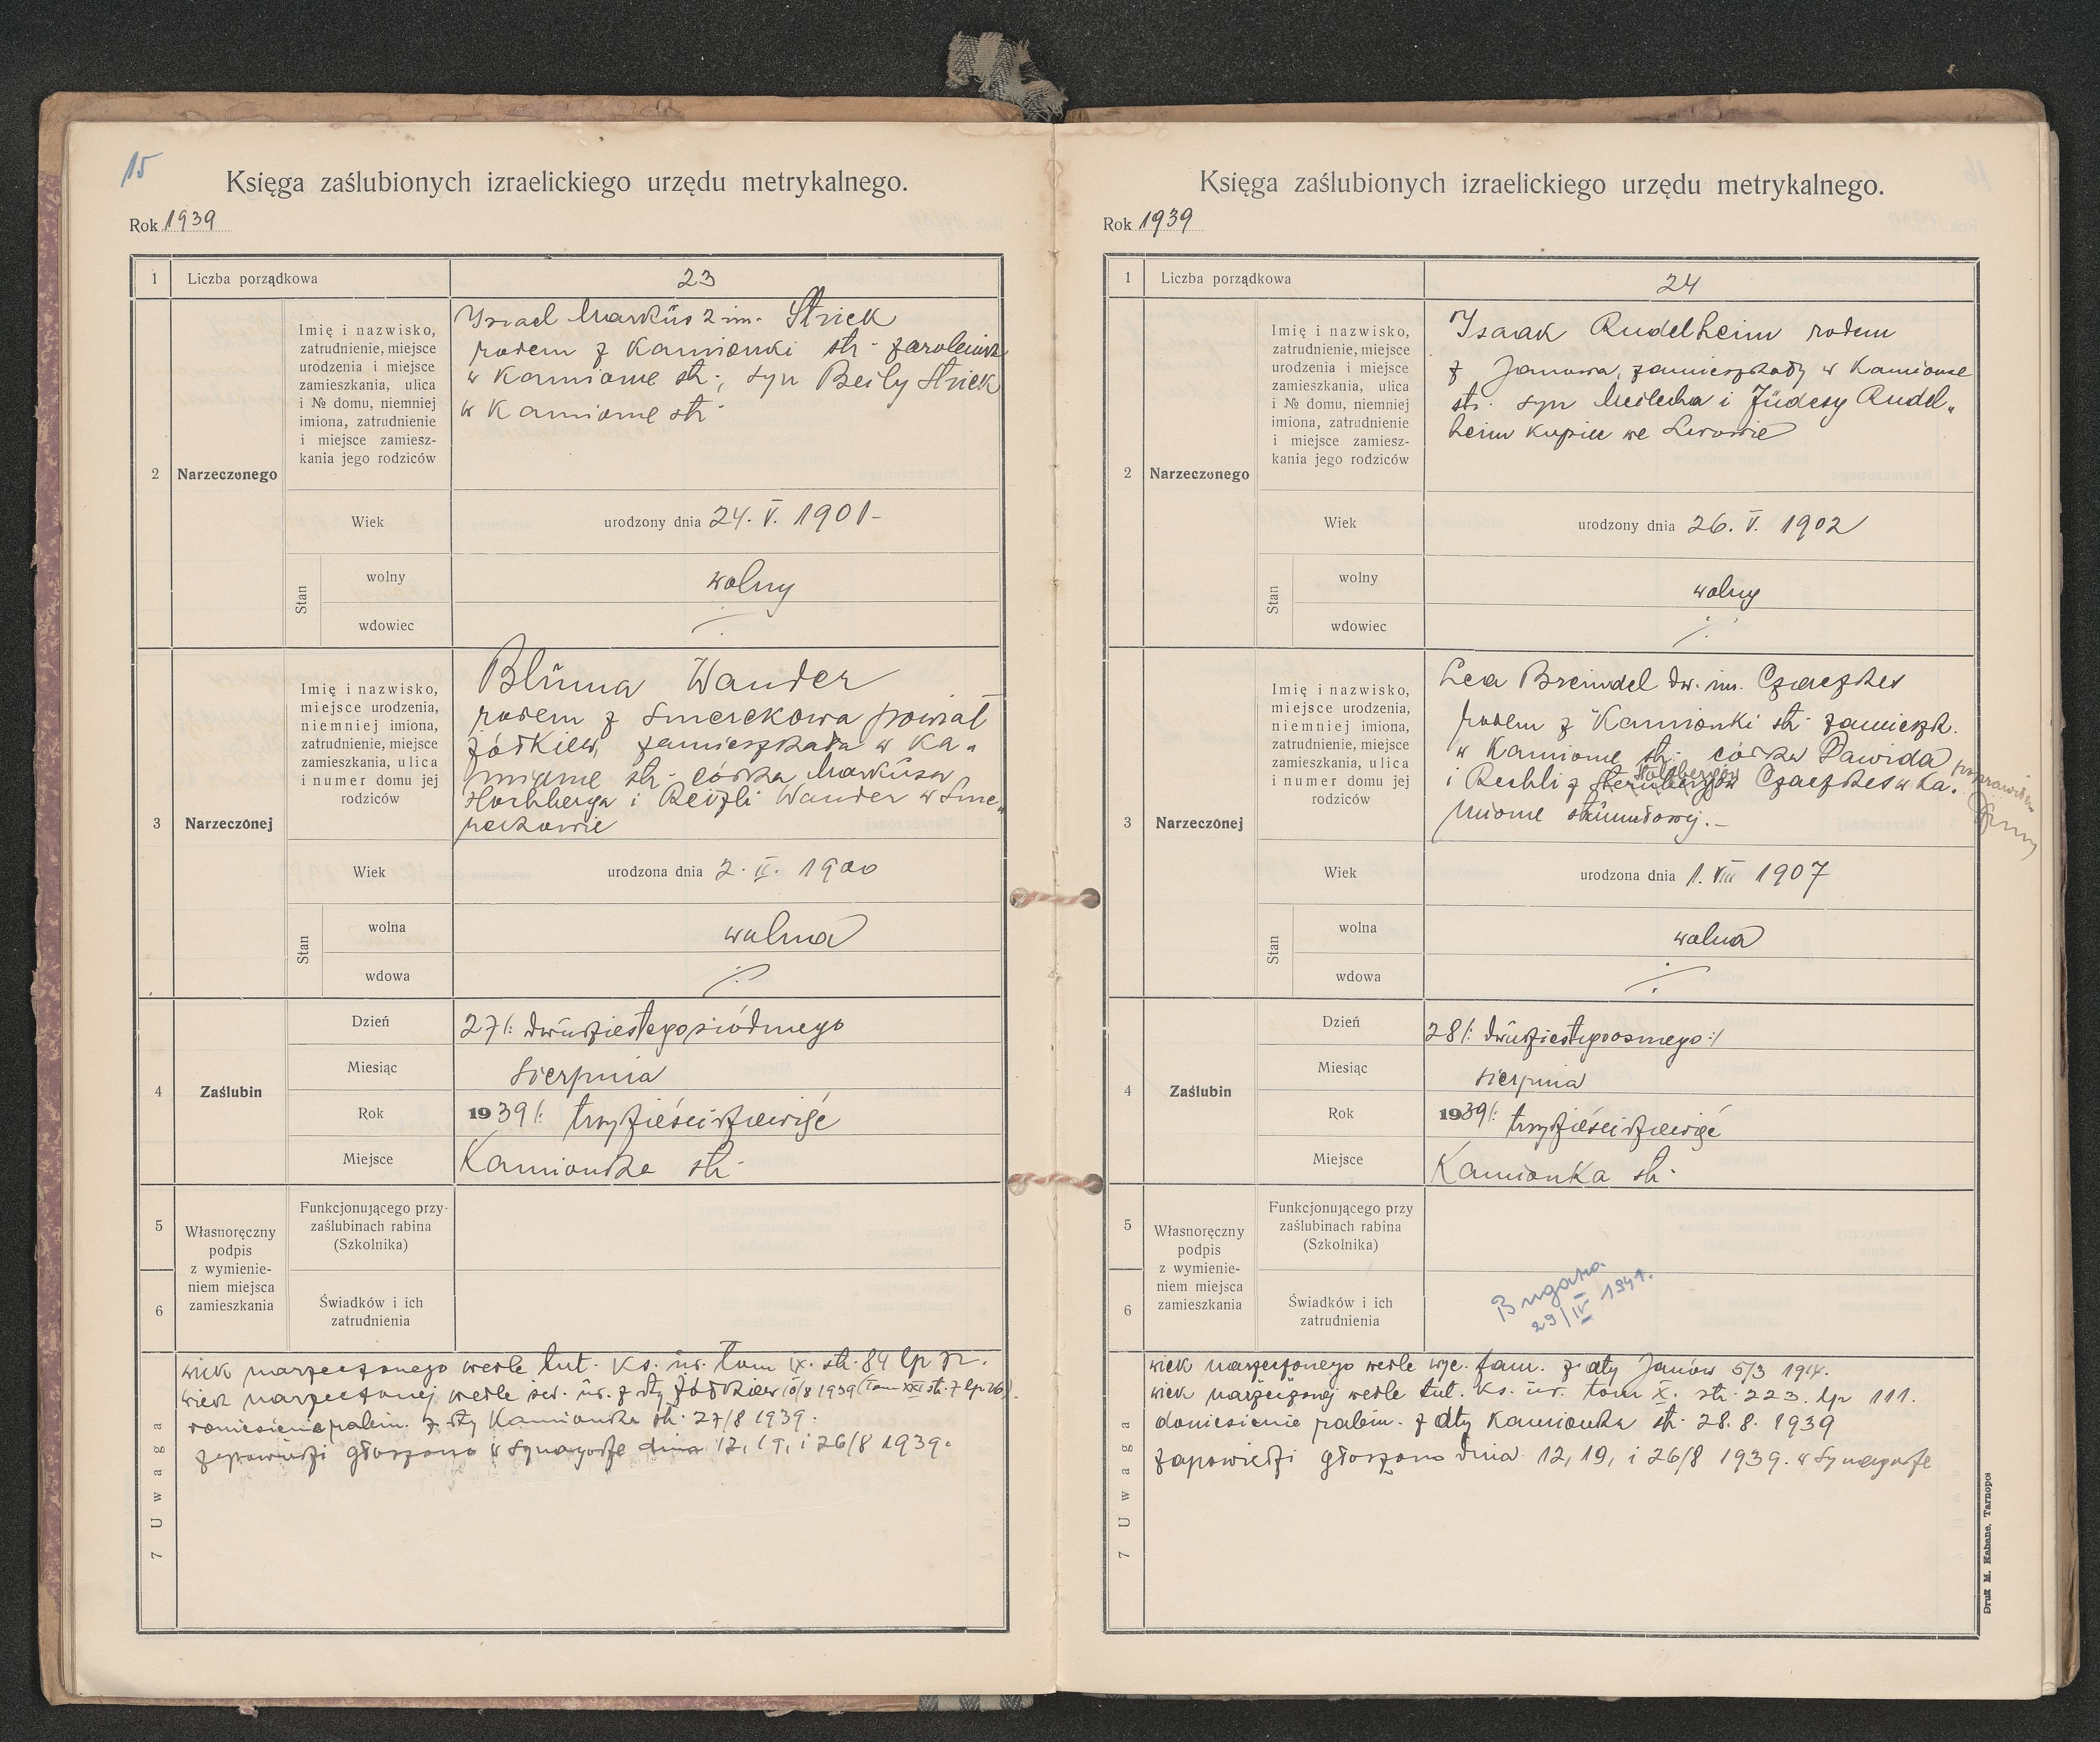 15
Księga zaślubionych izraelickiego urzędu metrykalnego.
Rok 1939
1 Liczba porządkowa 23
2 Narzeczonego
Imię i nazwisko,
zatrudnienie, miejsce
urodzenia i miejsce
zamieszkania, ulica
i № domu, niemniej
imiona, zatrudnienie
i miejsce zamiesz-
kania jego rodziców
Izrael Markűs 2 im. Strick
rodem z Kamionki str.
w Kamionce str., syn Beily Strick
w Kamionce str.
Wiek urodzony dnia 24. V. 1901-
Stan
wolny wolny
wdowiec
3 Narzeczonej
Imię i nazwisko,
miejsce urodzenia,
niemniej imiona,
zatrudnienie, miejsce
zamieszkania, ulica
i numer domu jej
rodziców
Blűma Wander
rodem z Smerekowa powiat
żółkiew, zamieszkała w Ka-
mionce str. córka Markűsa
Hochberga i Reizli Wander w Sme-
rekowie
Wiek urodzona dnia 2. II. 1900
Stan
wolna wolna
wdowa
4 Zaślubin
Dzień 27/: dwűdziestegosiódmego
Miesiąc sierpnia
Rok 1939/: trzydzieścidziewięć
Miejsce Kamionka str.
5
6
Własnoręczny
podpis
z wymienie-
niem miejsca
zamieszkania
Funkcjonującego przy-
zaślubinach rabina
(Szkolnika)
Świadków i ich
zatrudnienia
7 Uwaga
wiek narzeczonego wedle tut. ks. űr. tom IX. str. 84 lp
wiek narzeczonej wedle űr. z dty Żółkiew 10/8 1939 (Tom XXI str. 7 lp 26).
doniesienie rabin. z dty Kamionka str. 27/8 1939.
zapowiedzi głoszono w Synagodze dnia 12, 19, i 26/8 1939.
Księga zaślubionych izraelickiego urzędu metrykalnego.
Rok 1939
1 Liczba porządkowa 24
2 Narzeczonego
Imię i nazwisko,
zatrudnienie, miejsce
urodzenia i miejsce
zamieszkania, ulica
i № domu, niemniej
imiona, zatrudnienie
i miejsce zamiesz-
kania jego rodziców
Isaak Rudelheim rodem
z Janowa, zamieszkały w Kamionce
str. syn Meilecha i Jűdesy Rudel-
heim kupiec we Lwowie
Wiek urodzony dnia 26. V. 1902
Stan
wolny wolny
wdowiec
3 Narzeczonej
Imię i nazwisko,
miejsce urodzenia,
niemniej imiona,
zatrudnienie, miejsce
zamieszkania, ulica
i numer domu jej
rodziców
Lea Breindel dw. im. Czaczkes
rodem z Kamionki str. zamieszk.
w Kamionce str. córka Dawida
i Rechli z Czaczkes w Ka-
mionce strűmiłowej.-
poprawiłem
Wiek urodzona dnia 1. VIII 1907
Stan
wolna wolna
wdowa
4 Zaślubin
Dzień 28/: dwűdziestegoosmego:/
Miesiąc sierpnia
Rok 1939/: trzydzieścidziewięć
Miejsce Kamionka str.
5
6
Własnoręczny
podpis
z wymienie-
niem miejsca
zamieszkania
Funkcjonującego przy
zaślubinach rabina
(Szkolnika)
Świadków i ich
zatrudnienia
29/IV 1941.
7 Uwaga
wiek narzeczonego wedle wyc. fam. z dty Janów 5/3 1914.
wiek narzeczonej wedle tut. ks. űr. tom X. str. 223. lp 111.
doniesienie rabin. z dty Kamionka str. 28. 8. 1939
zapowiedzi głoszono dnia 12, 19, i 26/8 1939. w Synagodze
Druk M. Kahane, Tarnopol